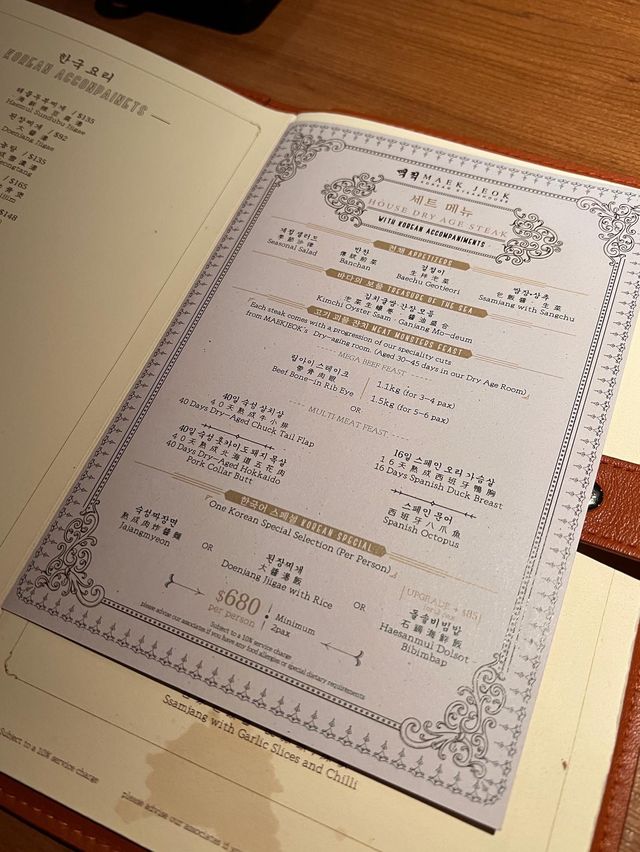 한국 요리
KOREAN ACCOMPAINETS
/ $135
Haemul Sundubu Jjigae
된장찌개 / $92
大醬湯
Doenjang Jjigae
/ $135
/ $165
$148
맥적 MAEK JEOK
KOREAN STEAKHOUSE
세트 메뉴
HOUSE DRY AGE STEAK
WITH KOREAN ACCOMPANIMENTS
전채 APPETIZERS
계절 샐러드
季節沙律
Seasonal Salad
반찬
傳統前菜
Banchan
겉절이
生拌泡菜
Baechu Geotjeori
쌈장·상추
包飯醬·生菜
Ssamjang with Sangchu
바다의 보물 TREASURE OF THE SEA
김치굴쌈·간장모듬
泡菜生蠔卷·醬油盛合
Kimchi Oyster Ssam · Ganjang Mo-deum
고기 괴물 잔치 MEAT MONSTERS FEAST
Each steak comes with a progression of our speciality cuts
from MAEKJEOK's Dry-aging room. (Aged 30-45 days in our Dry Age Room)
MEGA BEEF FEAST
립아이 스테이크
帶骨肉眼
Beef Bone-in Rib Eye
1.1kg (for 3-4 pax)
1.5kg (for 5-6 pax)
OR
MULTI MEAT FEAST
40일 숙성 살치살
40天熟成牛小排
40 Days Dry-Aged Chuck Tail Flap
16일 스페인 오리 가슴살
16天熟成西班牙鴨胸
16 Days Spanish Duck Breast
40일 숙성 홋카이도 돼지 목살
40天熟成北海道五花肉
40 Days Dry-Aged Hokkaido
Pork Collar Butt
스페인 문어
西班牙八爪魚
Spanish Octopus
한국어 스페셜 KOREAN SPECIAL
「One Korean Special Selection (Per Person)」
숙성짜장면
熟成肉炸醬麵
Jajangmyeon
OR
된장찌개
大醬湯飯
Doenjang Jjigae with Rice
OR
UPGRADE + $85
돌솥비빔밥
石鍋海鮮飯
Haesanmul Dolsot
Bibimbap
$680
per person
Minimum
2pax
Subject to a 10% service charge
please advise our associates if you have any food allergies or special dietary requirements
Ssamjang with Garlic Slices and Chilli
Subject to a 10% service charge
please advise our associates if you have any